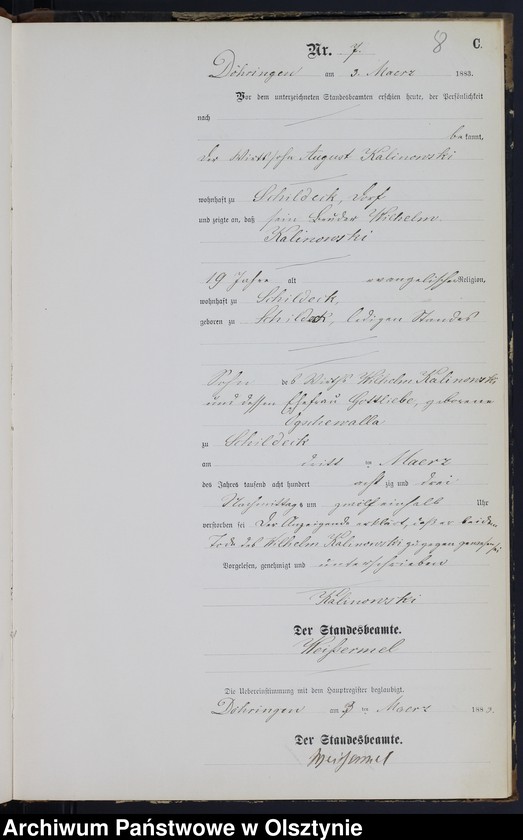 8 C.
Nr. 7.
Döhringen am 3. Maerz 1883.
Vor dem unterzeichneten Standesbeamten erschien heute, der Persönlichkeit
nach
bekannt,
der Wirthssohn August Kalinowski
wohnhaft zu Schildeck, Dorf
und zeigte an, daß sein Bruder Wilhelm
Kalinowski
19 Jahre alt evangelischer Religion,
wohnhaft zu Schildeck,
geboren zu Schildeck, ledigen Standes
Sohn des Wirths Wilhelm Kalinowski
und dessen Ehefrau Gottliebe, geborene
zu Schildeck
am Maerz
des Jahres tausend acht hundert achtzig und drei
Nachmittags um zwölf einhalb Uhr
verstorben sei. Der Anzeigende erklärt, daß er bei dem
Tode des Wilhelm Kalinowski zugegen gewesen sei
Vorgelesen, genehmigt und unterschrieben
Kalinowski
Der Standesbeamte.
Weißermel
Die Uebereinstimmung mit dem Hauptregister beglaubigt.
Döhringen am 3 ten Maerz 1883.
Der Standesbeamte.
Weißermel
Archiwum Państwowe w Olsztynie